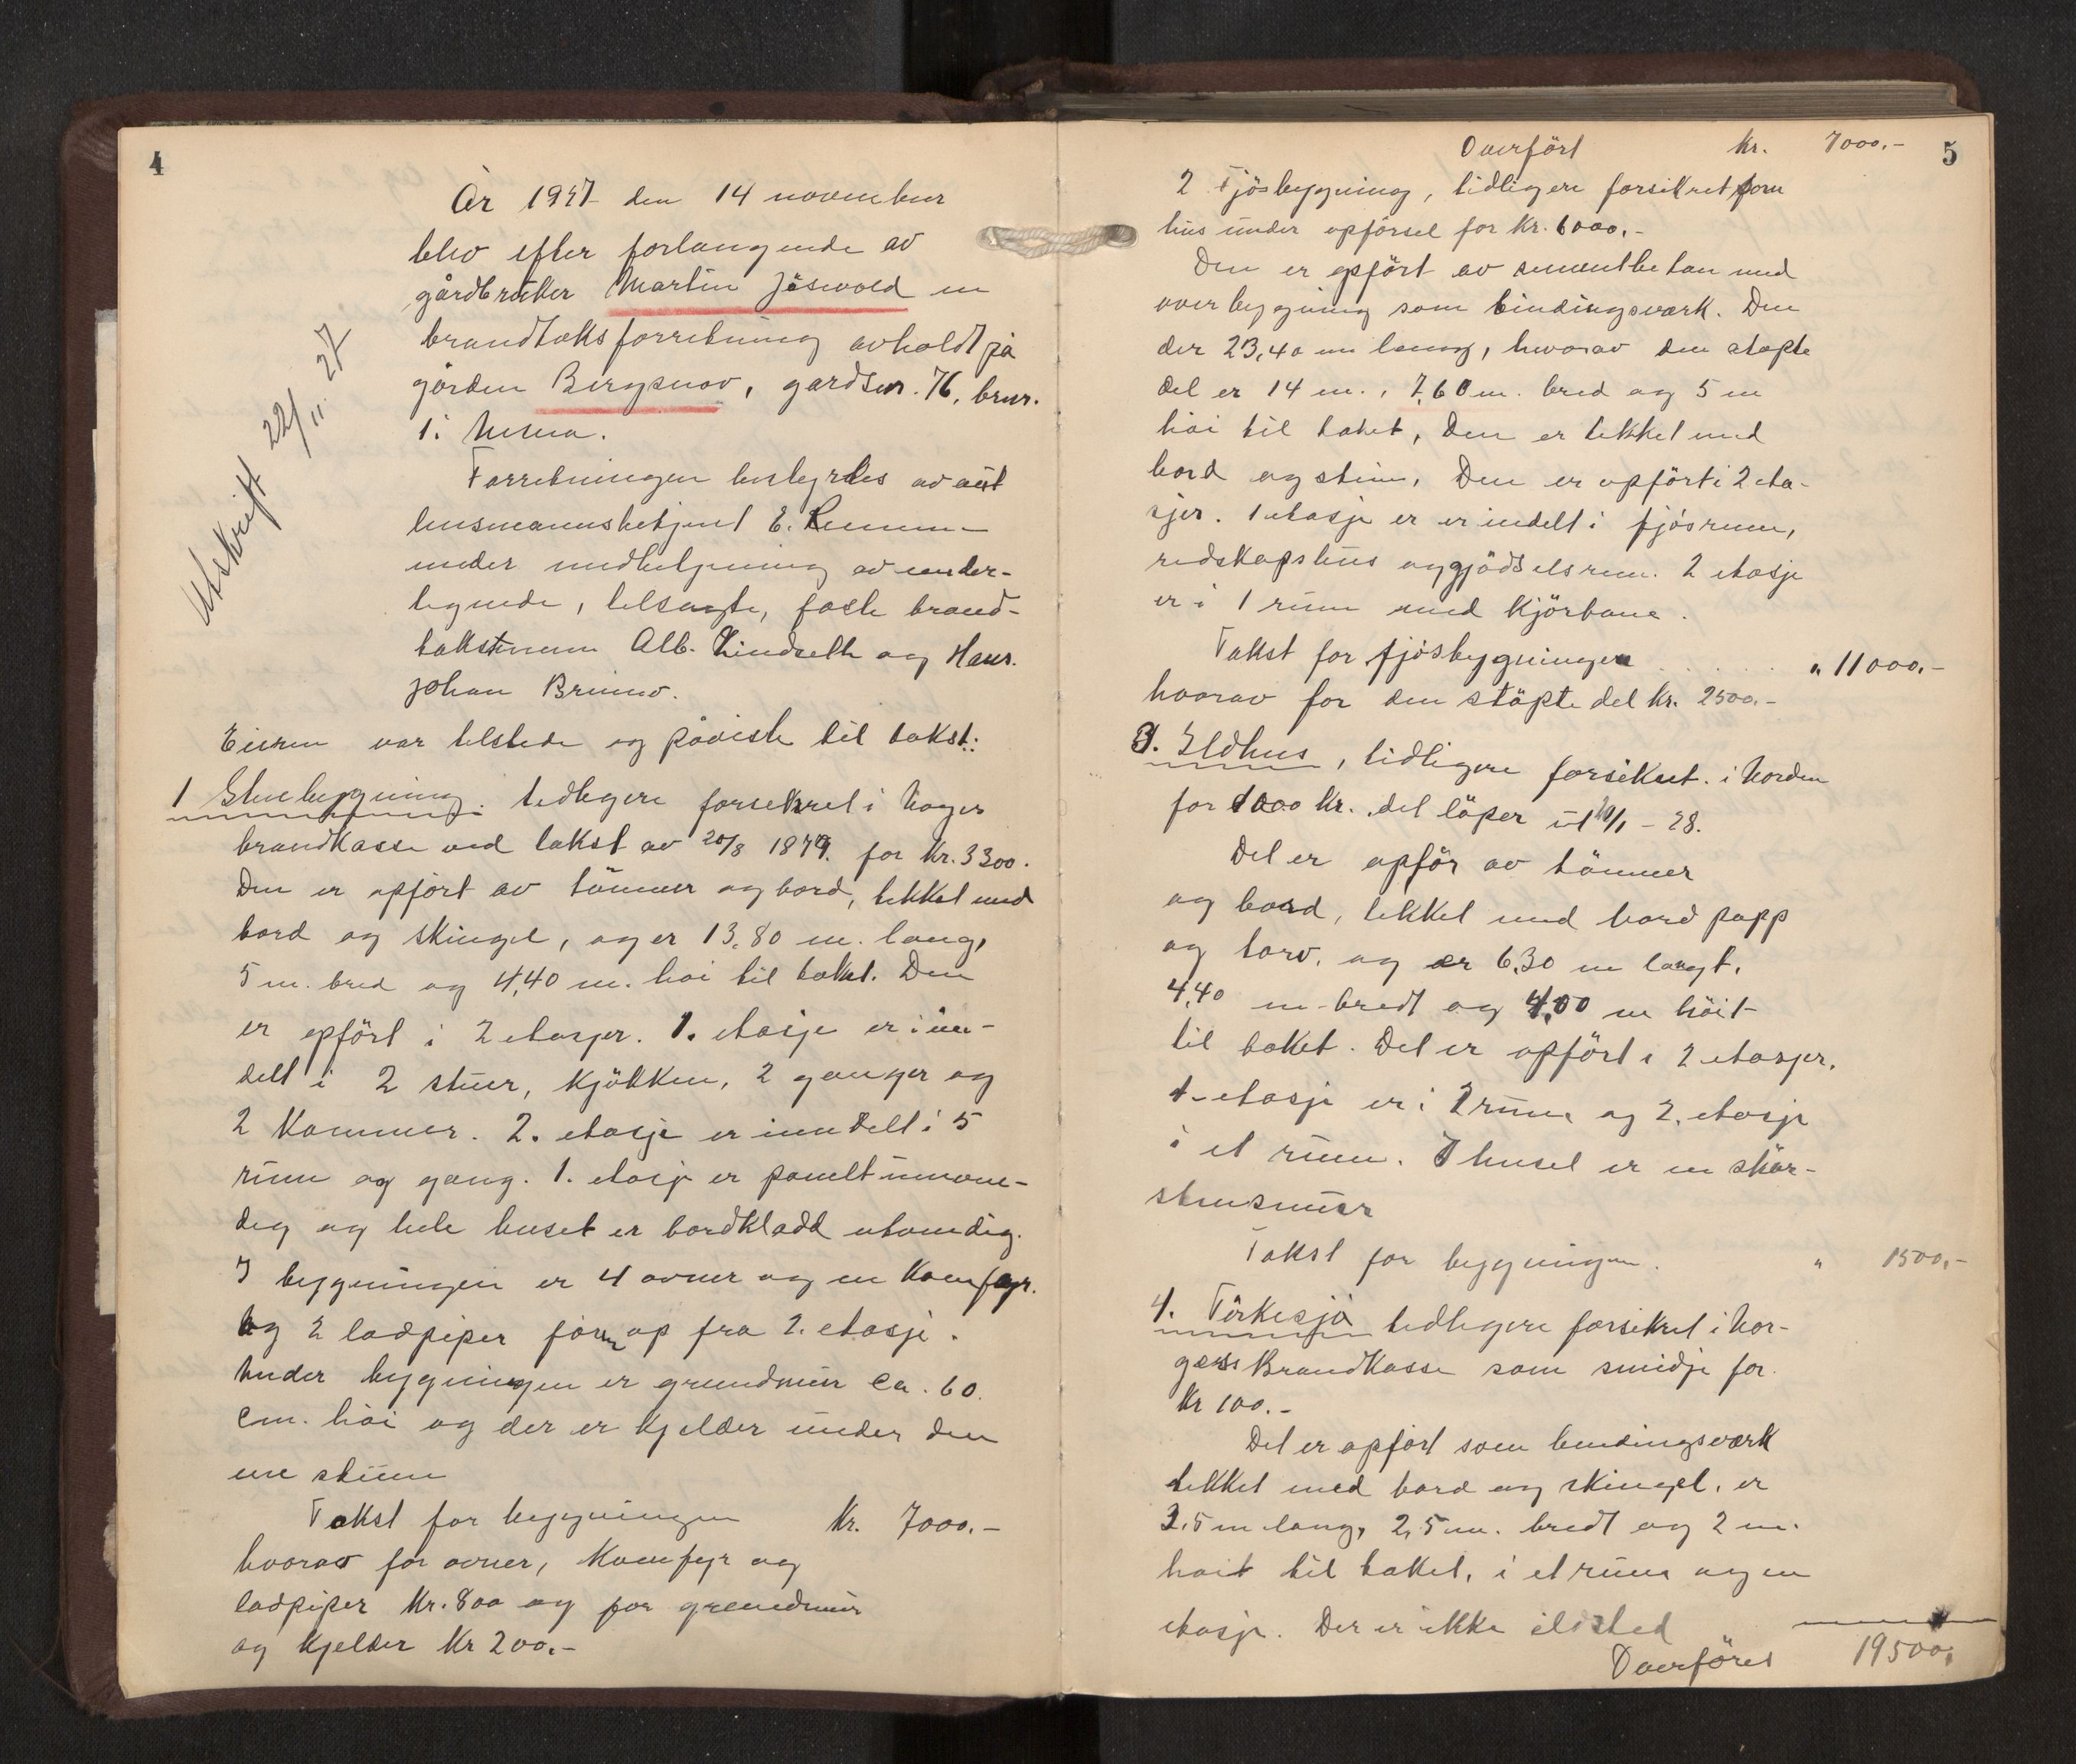 4
År 1927 den 14 november
blev efter forlangende av
gårdbruker Martin Jøsvold en
brandtaksforretning avholdt på
gården Bergsnov, gardsnr. 76, brnr.
1 i Nesna.
Utskrift 22/11 27
Forretningen bestyrtes av aut
lensmannsbetjent E.
under medhjelpning av under-
tegnede, tilsagte, faste brand-
takstmenn Alb. Zindseth og Hans.
Johan Brunvo.
Eieren var tilstede og påviste til takst:
1 Stuebygning. tidligere forsekret i Norges
brandkasse ved takst av 20/8 1879. for Kr. 3300.
Den er opført av tømmer og bord, tekket med
bord og skingel, og er 13,80 m. lang,
5 m. bred og 4,40 m. høi til taket. Den
er opført i 2 etasjer. 1. etasje er i inn-
delt i 2 stuer, kjøkken, 2 ganger og
2 kammer. 2. etasje er inndelt i 5
rum og gang. 1. etasje er panelt innven-
dig og hele huset er bordkladd utvendig.
I bygningen er 4 ovner og en komfyr.
og 2 ladpiper før op fra 2. etasje.
Under bygningen er grundmur ca. 60
cm. høi og der er kjelder under den
ene stuen
Takst for bygningen Kr. 7000.-
hvorav for ovner, komfyr og
ladpiper Kr. 800 og for grundmur
og kjelder Kr 200.-
5
Overført kr. 7000.-
2 Fjøsbygning, tidligere forsikret som
hus under opførsel for Kr. 6000.-
Den er opført av sementbeton med
overbygning som bindingsverk. Den
der 23,40 m lang, hvorav den støpte
del er 14 m., 7,60 m. bred og 5 m
høi til taket, Den er tekket med
bord og stein, Den er opført i 2 eta-
sjer. 1 etasje er er indelt i fjøsrum,
redskapshus og gjødselsrum. 2 etasje
er i 1 rum med kjørbane.
Takst for fjøsbygningen . . . . . " 11000.-
hvorav for den støpte del kr. 2500.-
3. Eldhus, tidligere forsikret. i Norden
for 1000 Kr. det løper ut 10/1 - 28.
Det er opför av tømmer
og bord, tekket med bord papp
og torv. og er 6,30 m langt,
4,40 m bredt og 4,00 m høit
til taket. Det er opført i 2 etasjer.
1. etasje er i 2 rum, og 2. etasje
i et rum. I huset er en skor-
stensmur
Takst for bygningen. " 1500.-
4. Tørkesjå tidligere forsikret i Nor-
gess Brandkasse som smidje for
Kr 100.-
Det er opført som bendingsverk
tekket med bord og skingel, er
3.5 m lang, 2,5 m. bredt og 2 m.
høit til taket, i et rum og en
etasje. Der er ikke ildsted
Overføres 19500.